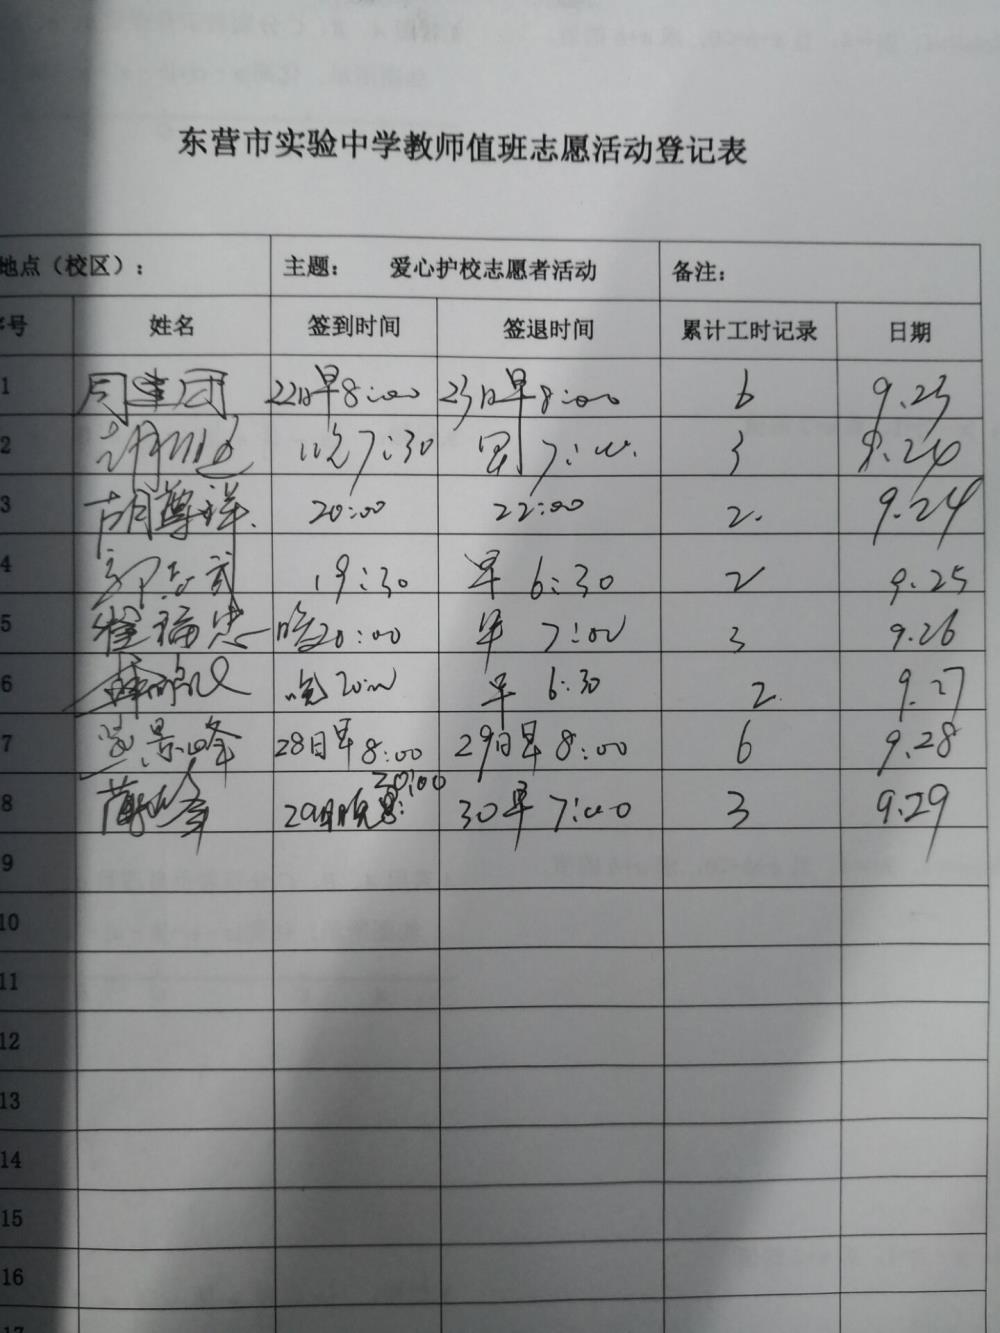 东营市实验中学教师值班志愿活动登记表
地点（校区）： 主题： 爱心护校志愿者活动 备注：
号 姓名 签到时间 签退时间 累计工时记录 日期
1 周建国 22日早8:00 23日早8:00 6 9.23
2 晚7:30 7:00. 3 9.24
3 胡尊祥 20:00 22:00 2. 9.24
4 19:30 早 6:30 2 9.25
5 崔福忠 晚20:00 早 7:00 3 9.26
6 晚20:00 早 6:30 2. 9.27
7 景峰 28日早8:00 29日早8:00 6 9.28
8 29日晚 20:00 30早7:00 3 9.29
9
10
11
12
13
14
15
16
17